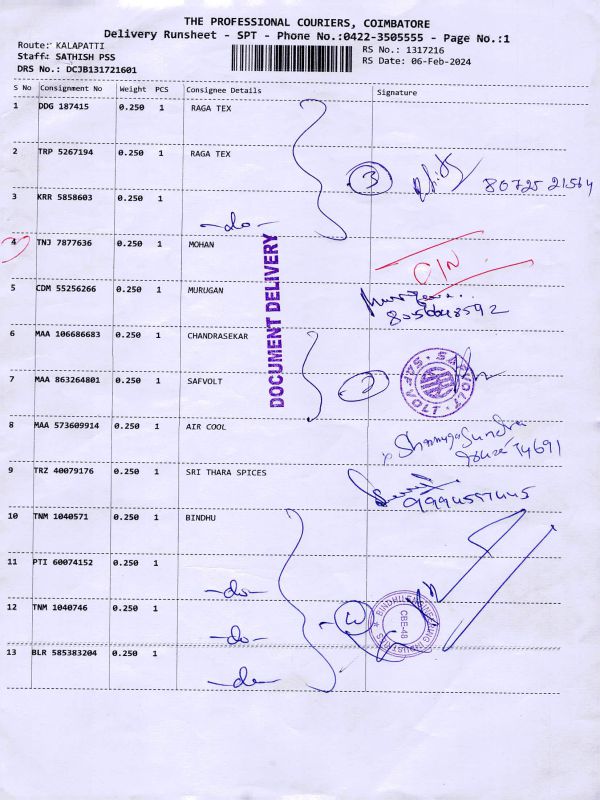 THE PROFESSIONAL COURIERS, COIMBATORE
Delivery Runsheet - SPT - Phone No.:0422-3505555 - Page No.:1
Route: KALAPATTI
RS No.: 1317216
Staff: SATHISH PSS
RS Date: 06-Feb-2024
DRS No.: DCJB131721601
S No Consignment No Weight PCS Consignee Details Signature
1 DDG 187415 0.250 1 RAGA TEX
2 TRP 5267194 0.250 1 RAGA TEX
3 80725 21564
3 KRR 5858603 0.250 1
-do-
4 TNJ 7877636 0.250 1 MOHAN
C/N
DOCUMENT DELIVERY
5 CDM 55256266 0.250 1 MURUGAN
8056648592
6 MAA 106686683 0.250 1 CHANDRASEKAR
7 MAA 863264801 0.250 1 SAFVOLT
2
SAFVOLT
SAFVOLT
8 MAA 573609914 0.250 1 AIR COOL
Shanmuga Sundra
74691
9 TRZ 40079176 0.250 1 SRI THARA SPICES
9994557445
10 TNM 1040571 0.250 1 BINDHU
11 PTI 60074152 0.250 1
-do-
12 TNM 1040746 0.250 1
-do-
CBE-48
13 BLR 585383204 0.250 1
-do-